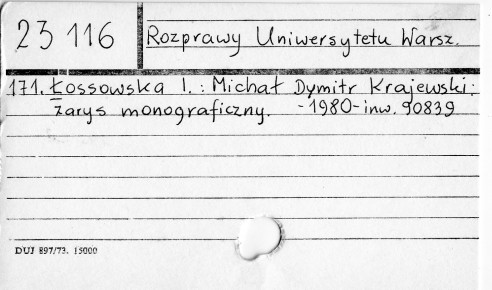 23 116
Rozprawy Uniwersytetu Warsz.
171. Łossowska I. : Michał Dymitr Krajewski:
zarys monograficzny. -1980- inw. 90839
DUJ 897/73. 15000